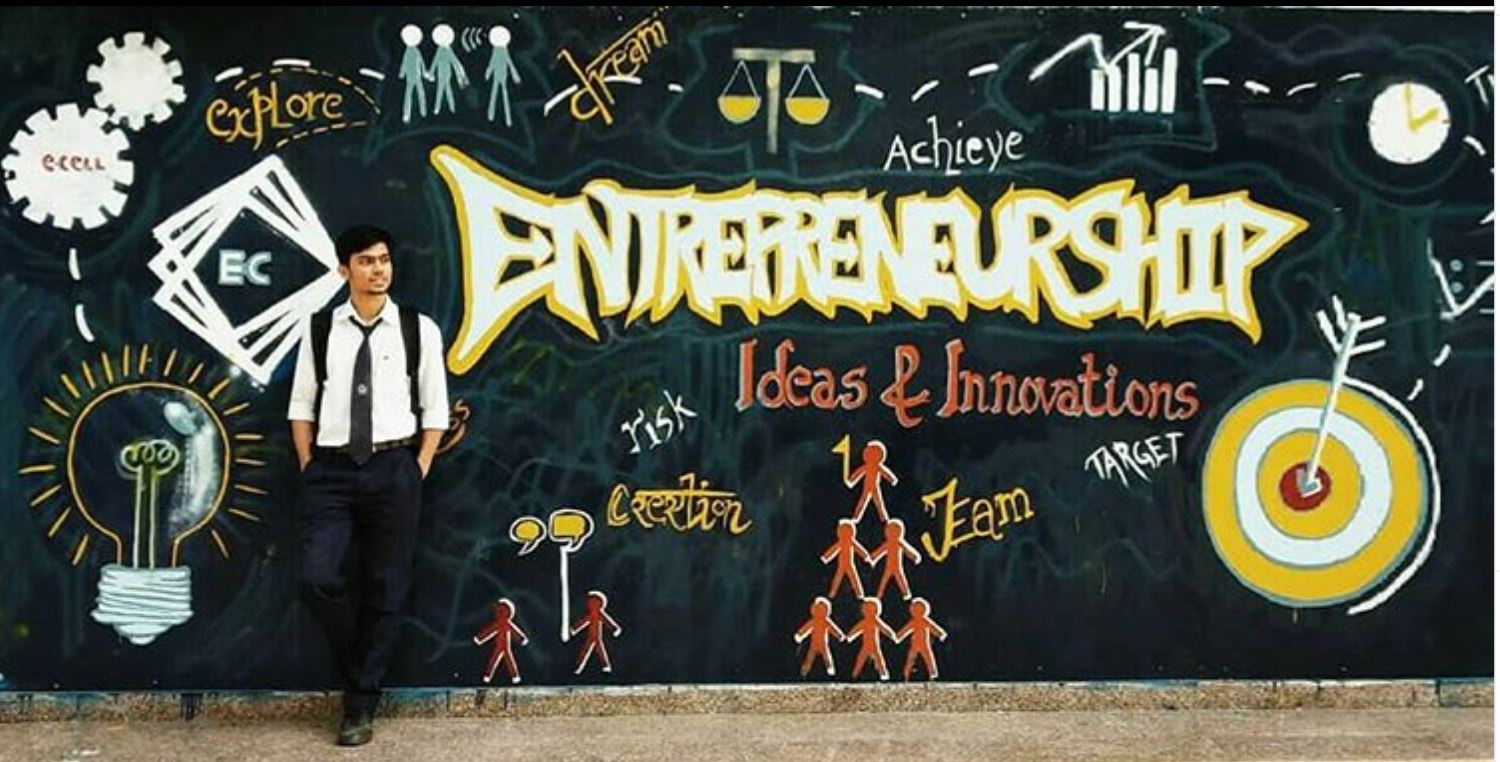 explore
dream
Achieve
e-cell
EC
ENTREPRENEURSHIP
Ideas & Innovations
risk
TARGET
Creation
Team